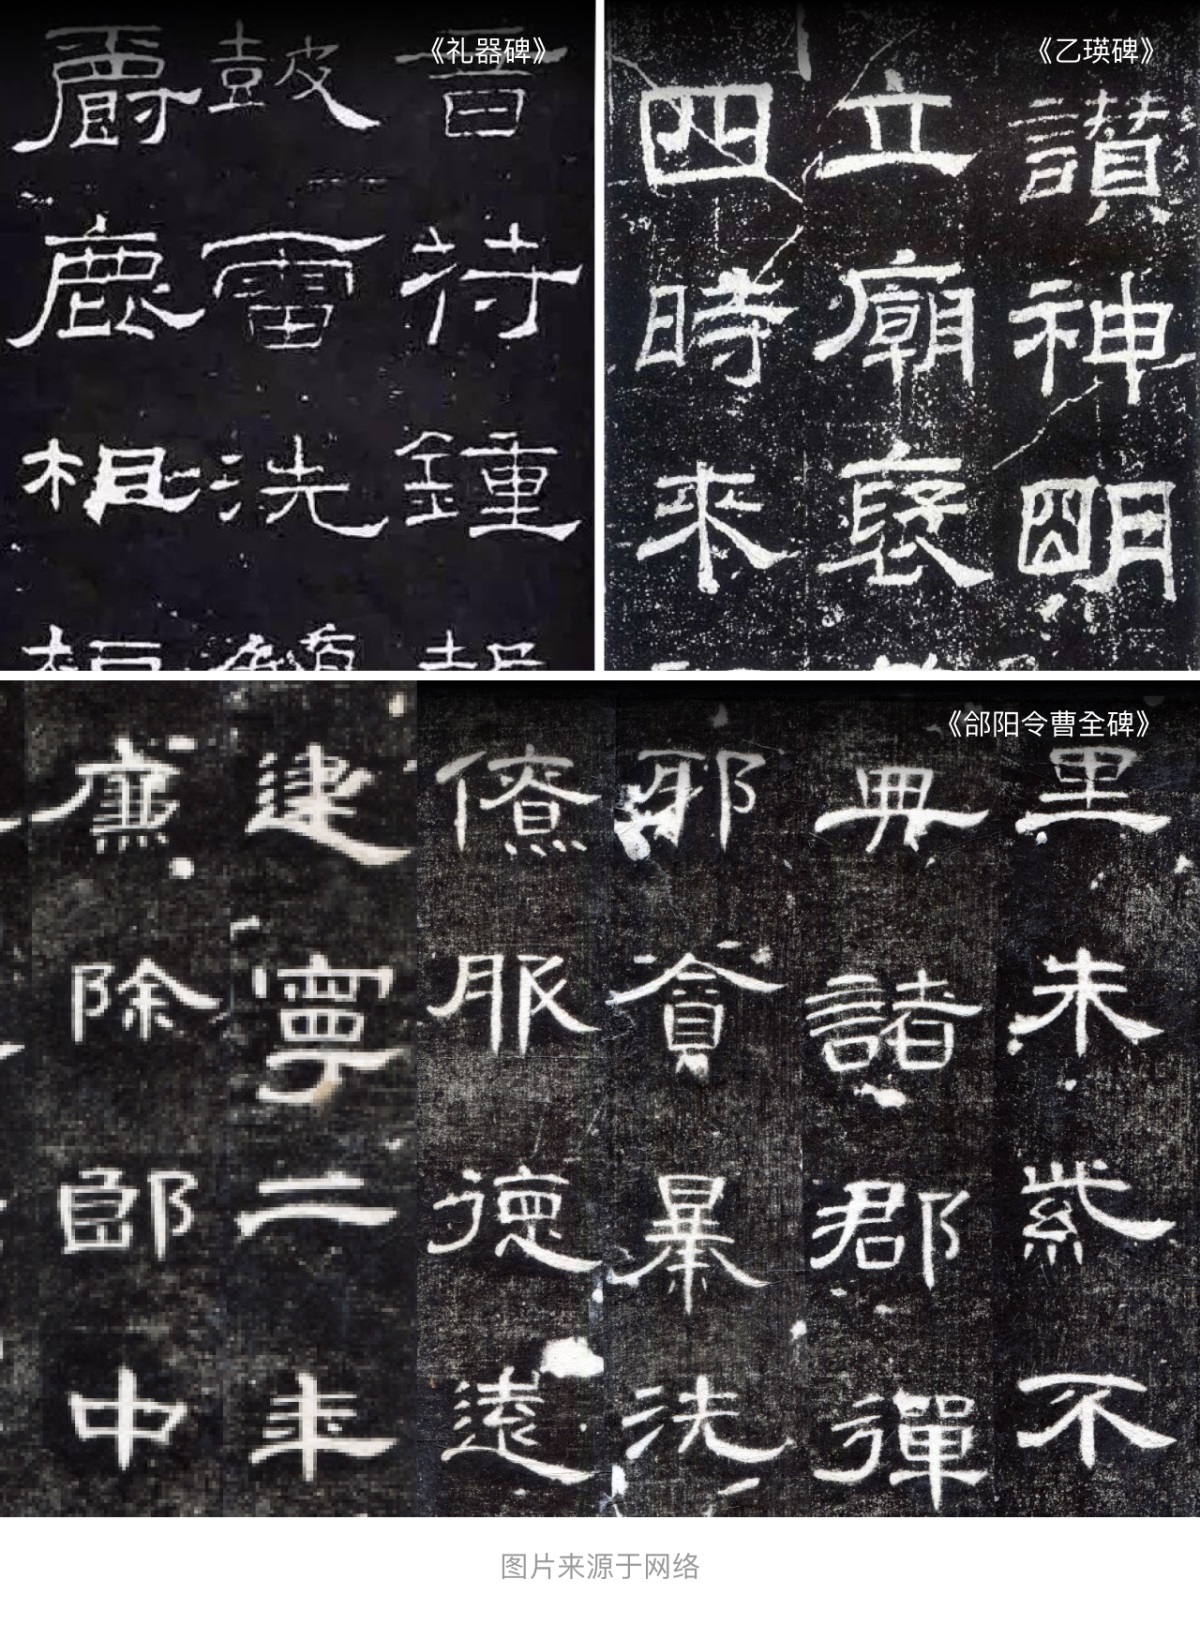 《礼器碑》
音苻鍾
皷雷洗
爵鹿柤
《乙瑛碑》
讃神明
立廟襃
四時來
《郃阳令曹全碑》
里朱紫不
典諸郡彈
邪貪暴洗
僚服德遠
建寧二年
廉除郎中
图片来源于网络